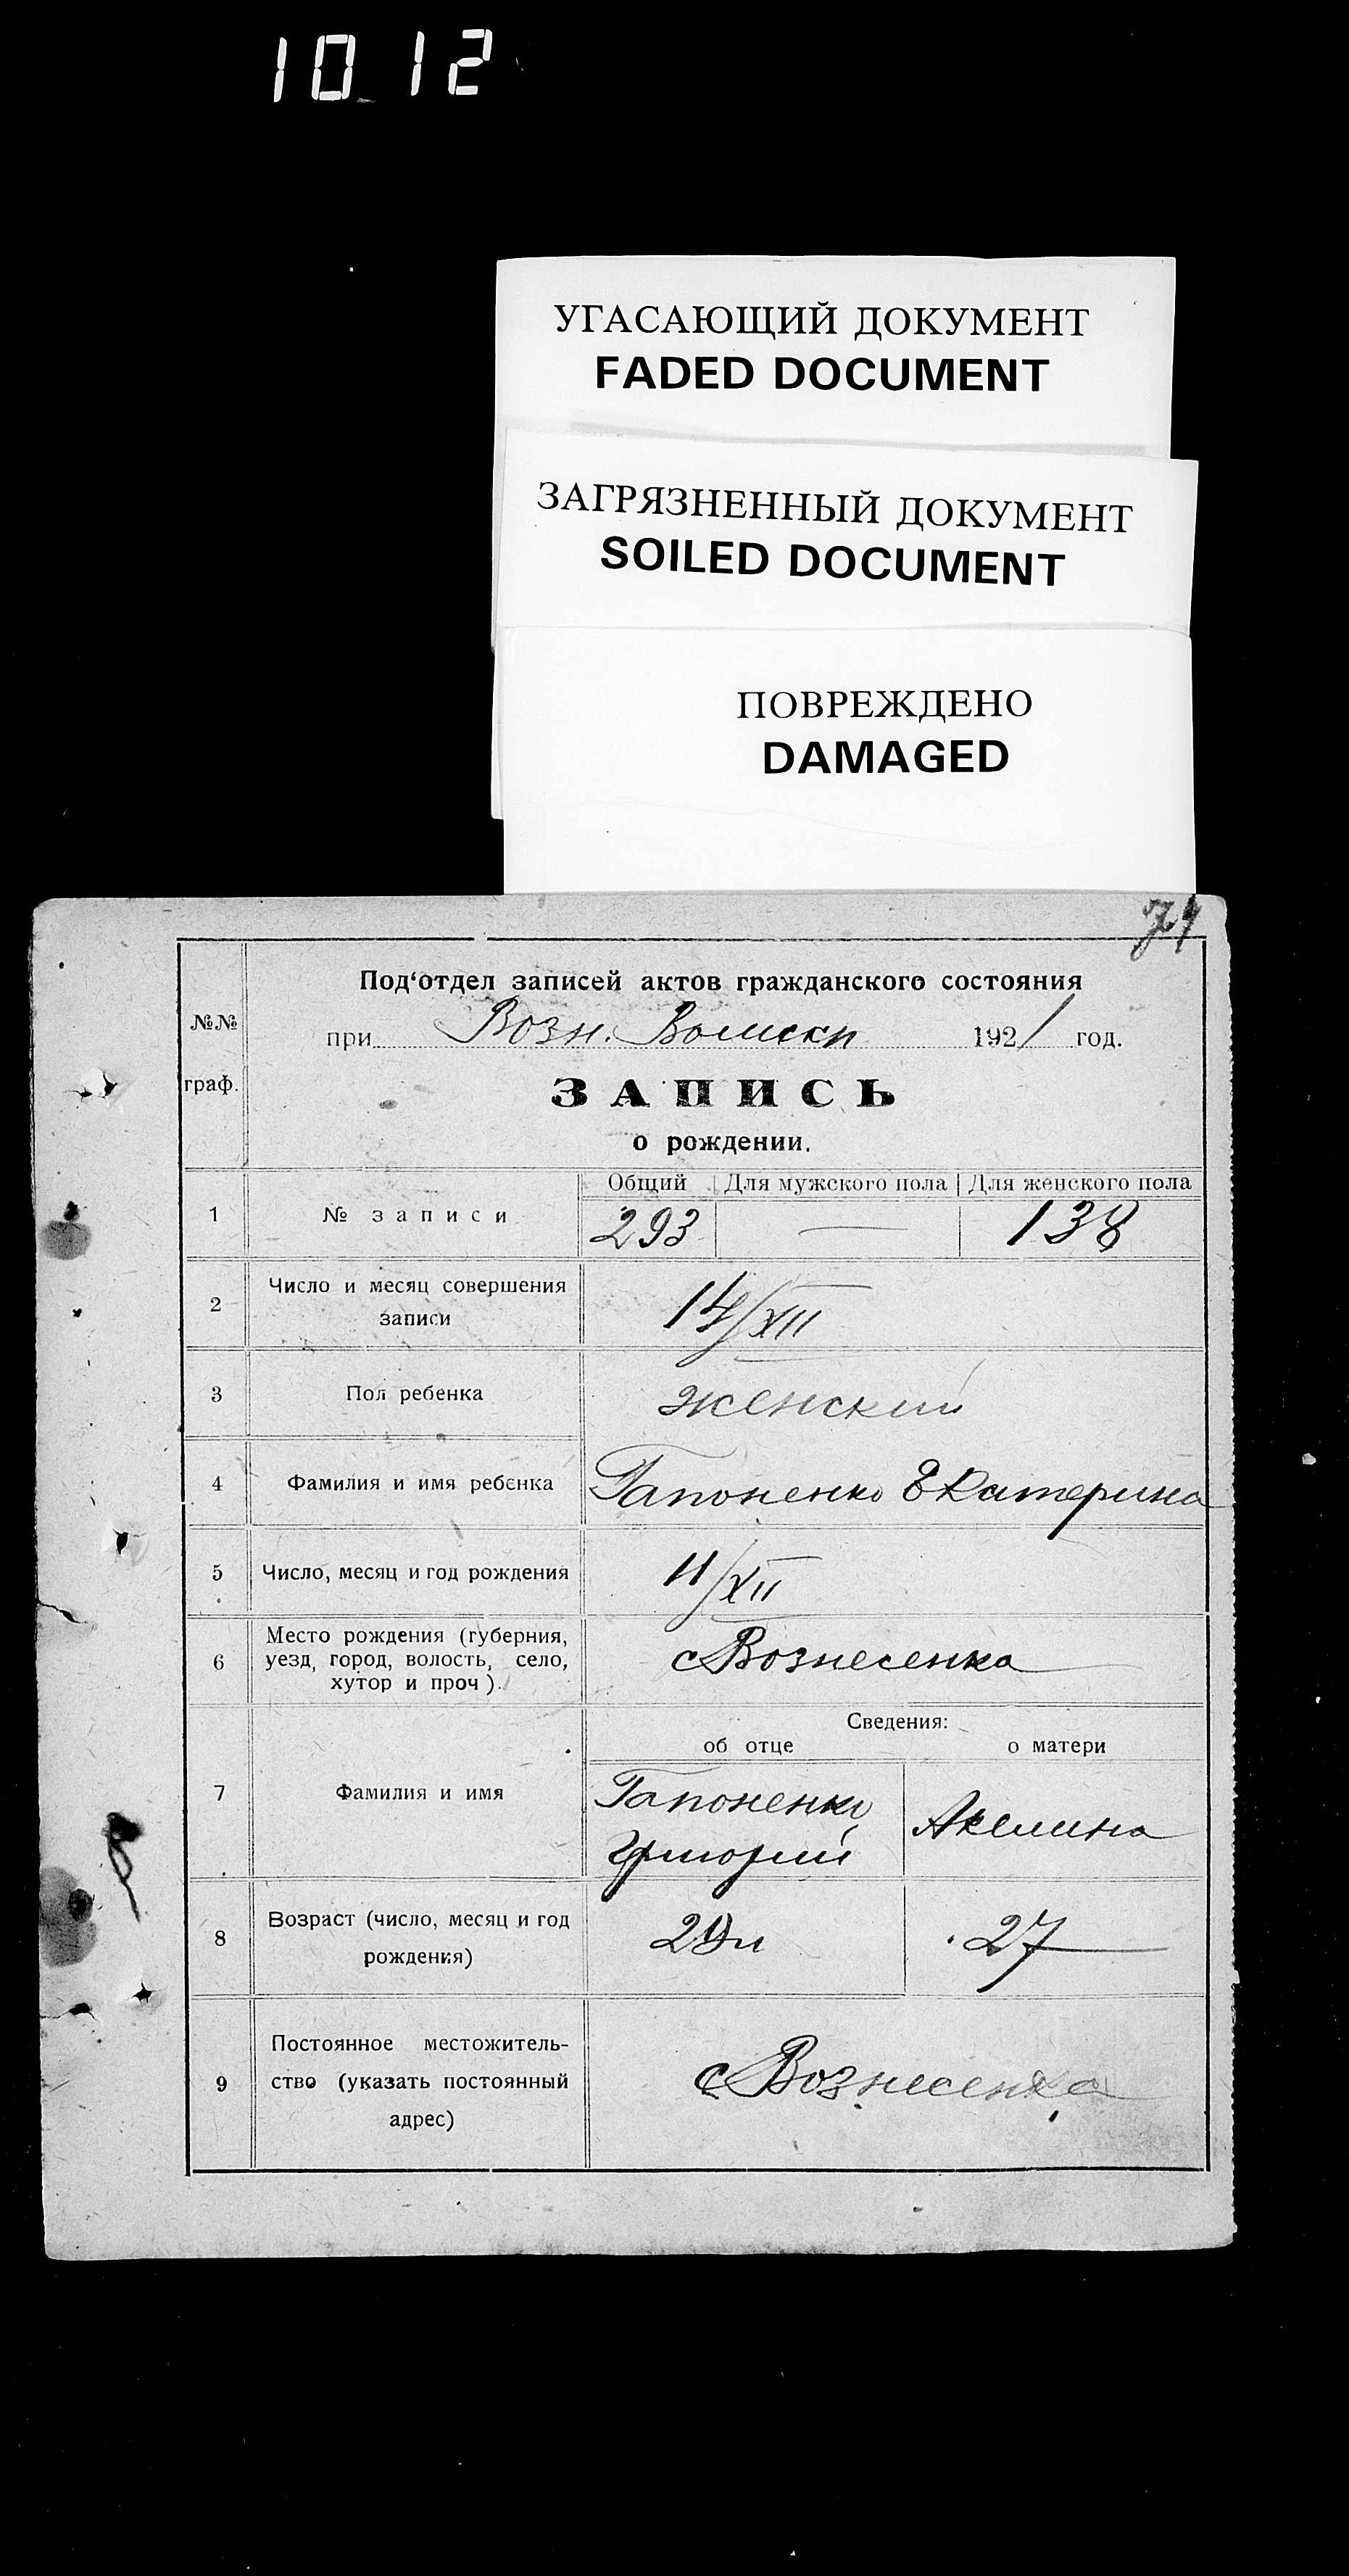 10 12
УГАСАЮЩИЙ ДОКУМЕНТ
FADED DOCUMENT
ЗАГРЯЗНЕННЫЙ ДОКУМЕНТ
SOILED DOCUMENT
ПОВРЕЖДЕНО
DAMAGED
Под‘отдел записей актов гражданского состояния
№№ граф.
при Возн. 1921 год.
ЗАПИСЬ
о рождении.
Общий Для мужского пола Для женского пола
1 № записи 293 — 138
2 Число и месяц совершения
записи 14/XII
3 Пол ребенка женский
4 Фамилия и имя ребенка Гапоненко Екатерина
5 Число, месяц и год рождения 11/XII
6 Место рождения (губерния,
уезд, город, волость, село,
хутор и проч). с Вознесенка
Сведения:
об отце о матери
7 Фамилия и имя Гапоненко Акелина
Григорий
8 Возраст (число, месяц и год
рождения) 29л 27
9 Постоянное местожитель-
ство (указать постоянный
адрес) с Вознесенка